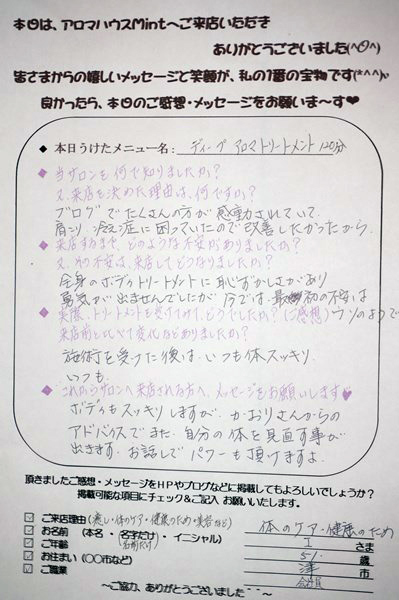 本日は、アロマハウスMintへご来店いただき
ありがとうございました(^O^)
皆さまからの嬉しいメッセージと笑顔が、私の1番の宝物です(*^^*)
良かったら、本日のご感想・メッセージをお願いま〜す♥
◆ 本日うけたメニュー名： ディープアロマトリートメント 120分
◆ 当サロンを何で知りましたか？
又、来店を決めた理由は、何ですか？
ブログでたくさんの方が感動されていて、
肩こり、冷え症に困っていたので改善したかったから。
◆ 来店するまで、どのような不安がありましたか？
又、その不安は、来店してどうなりましたか？
全身のボディトリートメントに恥ずかしさがあり
勇気が出ませんでしたが 今では 最初の不安は
ウソのようで
◆ 実際、トリートメントを受けてみて、どうでしたか？(ご感想)
来店前と比べて変化などありましたか？
施術を受けた後は、いつも体スッキリ、
いつも、
◆ これからサロンへ来店される方へ、メッセージをお願いします♥
ボディもスッキリしますが、かおりさんからの
アドバイスでまた、自分の体を見直す事が
出きます。お話しでパワーも頂けますよ。
頂きましたご感想・メッセージをHPやブログなどに掲載してもよろしいでしょうか？
掲載可能な項目にチェック＆ご記入 お願いいたします。
☑ ご来店理由(癒し・体のケア・健康のため・美容など) 体のケア・健康のため
☑ お名前 (本名・名字だけ・イニシャル) I さま
☑ ご年齢 51 歳
☑ お住まい (〇〇市など) 津 市
☑ ご職業 会社員
〜ご協力、ありがとうございました〜